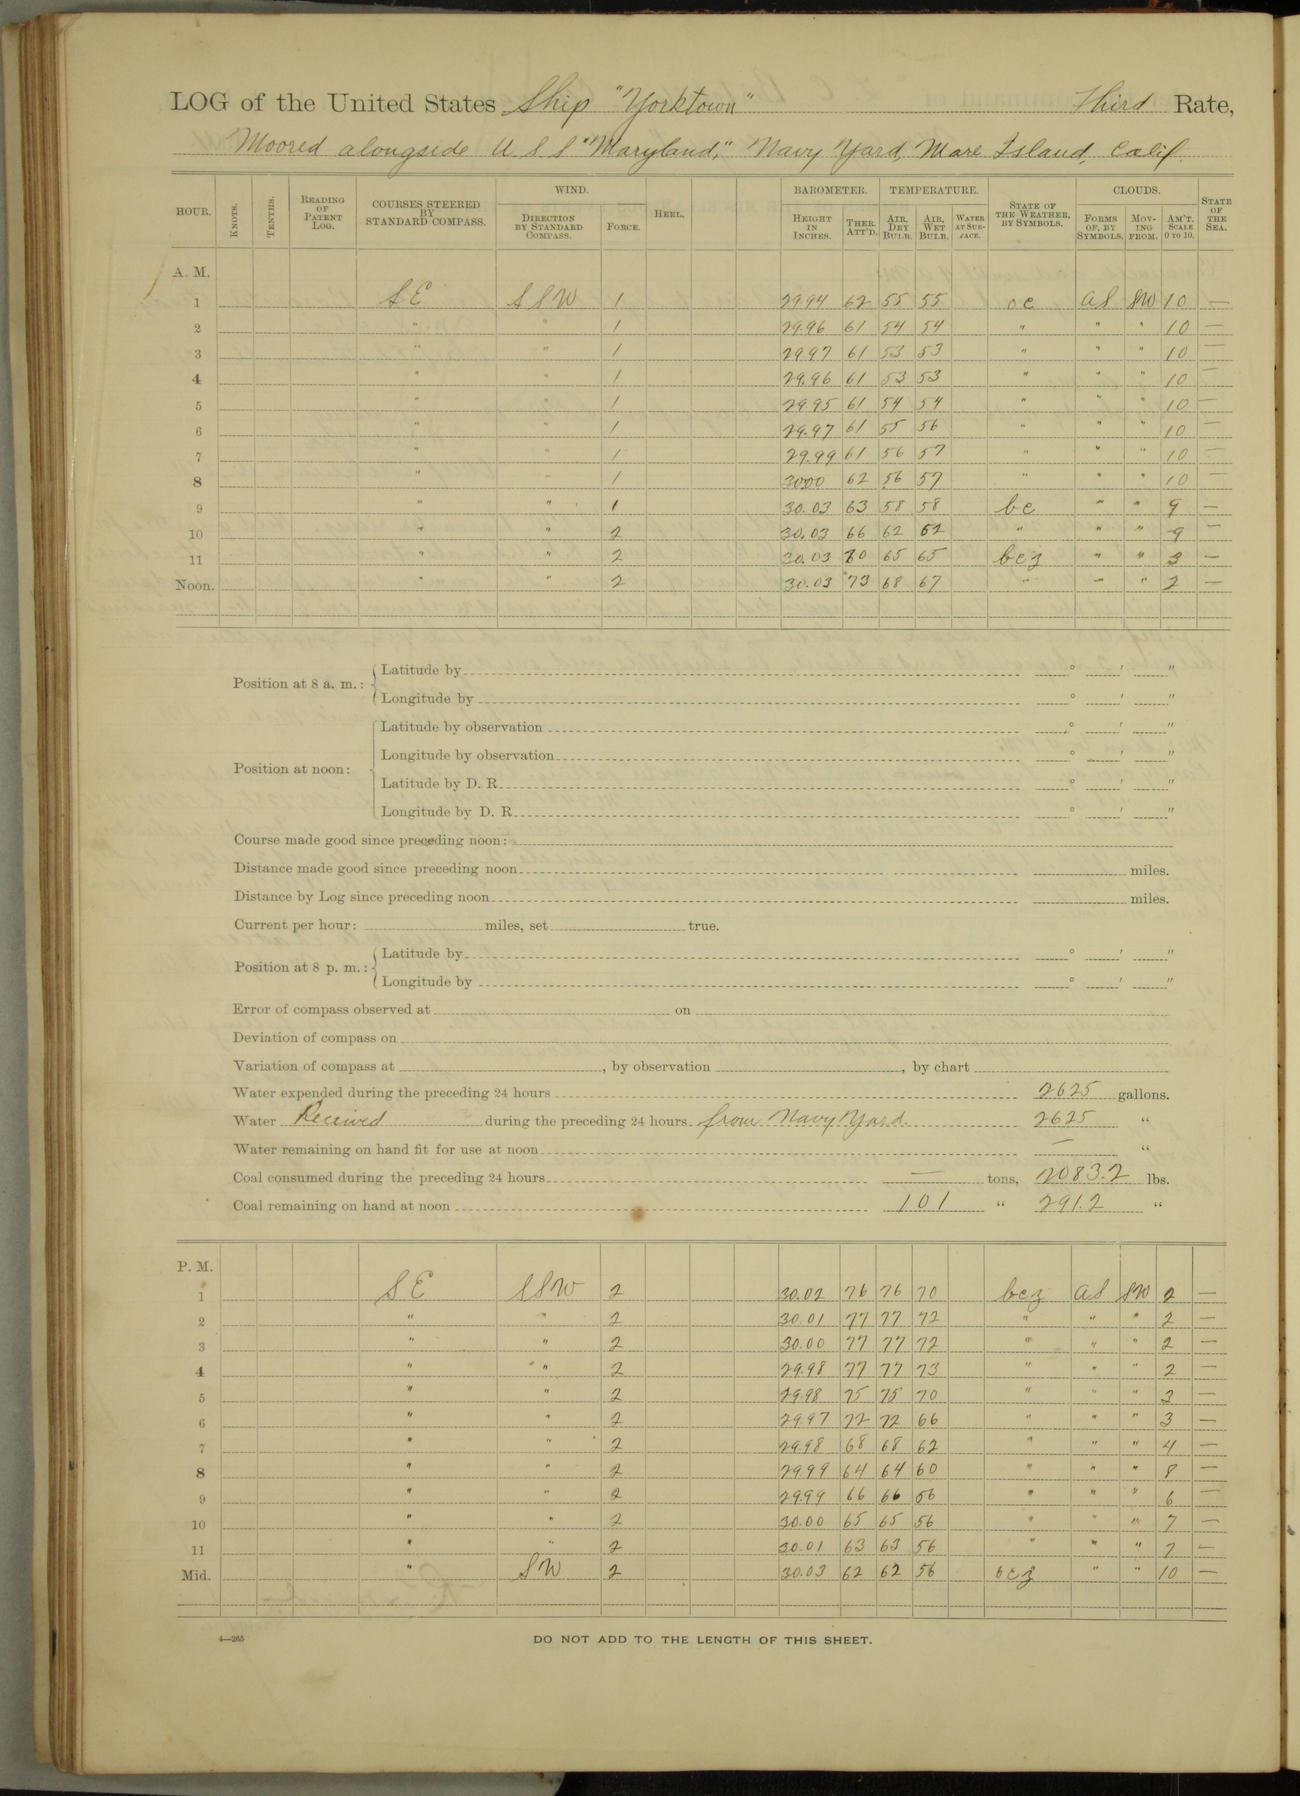 LOG of the United States Ship "Yorktown" Third Rate,
Moored alongside U.S.S "Maryland," Navy Yard, Mare Island, Calif.
HOUR. KNOTS. TENTHS. READING OF PATENT LOG. COURSES STEERED BY STANDARD COMPASS. WIND. DIRECTION BY STANDARD COMPASS. FORCE. HEEL. BAROMETER. HEIGHT IN INCHES. THER. ATT'D. TEMPERATURE. AIR, DRY BULB. AIR, WET BULB. WATER AT SURFACE. STATE OF THE WEATHER, BY SYMBOLS. CLOUDS. FORMS OF, BY SYMBOLS. MOVING FROM. AM'T. SCALE 0 TO 10. STATE OF THE SEA.
A. M.
1 SE SSW 1 29.94 62 55 55 oc AS SW 10 —
2 " " 1 29.96 61 54 54 " " " 10 —
3 " " 1 29.97 61 53 53 " " " 10 —
4 " " 1 29.96 61 53 53 " " " 10 —
5 " " 1 29.95 61 54 54 " " " 10 —
6 " " 1 29.97 61 55 56 " " " 10 —
7 " " 1 29.99 61 56 57 " " " 10 —
8 " " 1 30.00 62 56 57 " " " 10 —
9 " " 1 30.03 63 58 58 bc " " 9 —
10 " " 2 30.03 66 62 62 " " " 9 —
11 " " 2 30.03 70 65 65 bcz " " 3 —
Noon. " " 2 30.03 73 68 67 " " " 2 —
Position at 8 a. m.: Latitude by ° ′ ″
Longitude by ° ′ ″
Position at noon: Latitude by observation ° ′ ″
Longitude by observation ° ′ ″
Latitude by D. R. ° ′ ″
Longitude by D. R. ° ′ ″
Course made good since preceding noon:
Distance made good since preceding noon miles.
Distance by Log since preceding noon miles.
Current per hour: miles, set true.
Position at 8 p. m.: Latitude by ° ′ ″
Longitude by ° ′ ″
Error of compass observed at on
Deviation of compass on
Variation of compass at , by observation , by chart
Water expended during the preceding 24 hours 2625 gallons.
Water Received during the preceding 24 hours from Navy Yard. 2625 "
Water remaining on hand fit for use at noon — "
Coal consumed during the preceding 24 hours — tons, 2083.2 lbs.
Coal remaining on hand at noon 101 " 291.2 "
P. M.
1 SE SSW 2 30.02 76 76 70 bcz AS SW 2 —
2 " " 2 30.01 77 77 72 " " " 2 —
3 " " 2 30.00 77 77 72 " " " 2 —
4 " " 2 29.98 77 77 73 " " " 2 —
5 " " 2 29.98 75 75 70 " " " 3 —
6 " " 2 29.97 72 72 66 " " " 3 —
7 " " 2 29.98 68 68 62 " " " 4 —
8 " " 2 29.99 64 64 60 " " " 8 —
9 " " 2 29.99 66 66 56 " " " 6 —
10 " " 2 30.00 65 65 56 " " " 7 —
11 " " 2 30.01 63 63 56 " " " 7 —
Mid. " SW 2 30.03 62 62 56 bcz " " 10 —
4—265
DO NOT ADD TO THE LENGTH OF THIS SHEET.